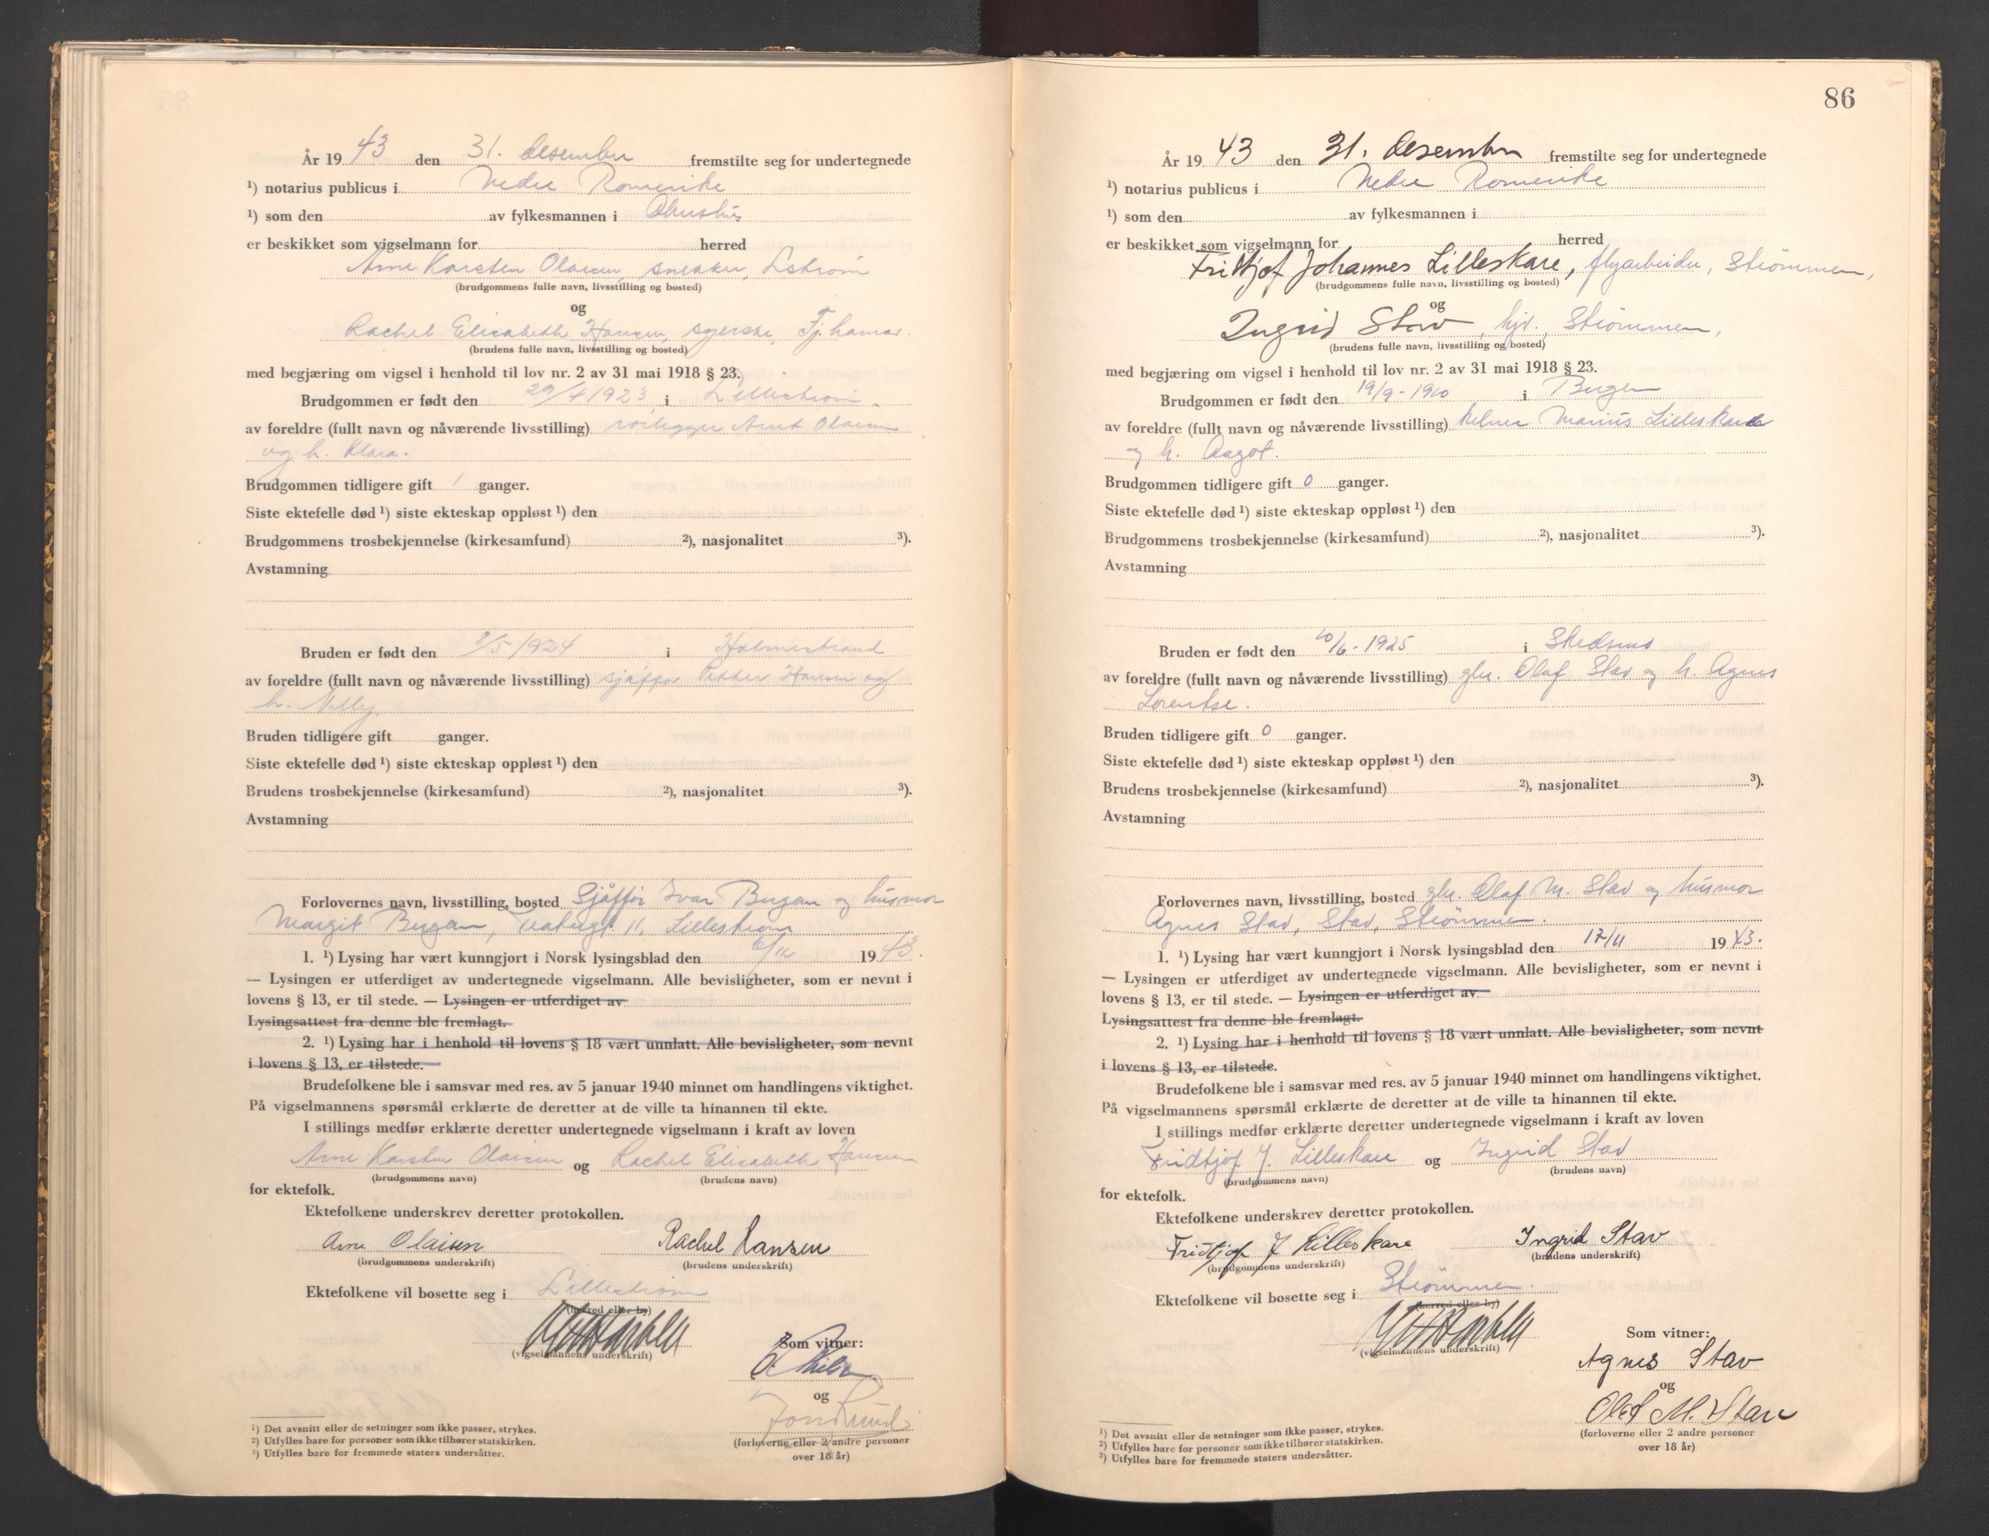 År 19 43 den 31. desember fremstilte seg for undertegnede
¹) notarius publicus i Nedre Romerike
¹) som den av fylkesmannen i Akershus
er beskikket som vigselmann for herred
Arne Karsten Olaisen, snekker, L.strøm
(brudgommens fulle navn, livsstilling og bosted)
og
Rachel Elisabeth Hansen, syerske, Fj.hamar.
(brudens fulle navn, livsstilling og bosted)
med begjæring om vigsel i henhold til lov nr. 2 av 31 mai 1918 § 23.
Brudgommen er født den 29/4 1923, i Lillestrøm.
av foreldre (fullt navn og nåværende livsstilling) rørlegger Arnt Olaisen
og h. Klara.
Brudgommen tidligere gift 1 ganger.
Siste ektefelle død ¹) siste ekteskap oppløst ¹) den
Brudgommens trosbekjennelse (kirkesamfund) ²), nasjonalitet ³).
Avstamning
Bruden er født den 8/5 1924 i Holmestrand
av foreldre (fullt navn og nåværende livsstilling) sjåffør Petter Hansen og
h. Nelly
Bruden tidligere gift ganger.
Siste ektefelle død ¹) siste ekteskap oppløst ¹) den
Brudens trosbekjennelse (kirkesamfund) ²), nasjonalitet ³).
Avstamning
Forlovernes navn, livsstilling, bosted Sjåffør Ivar Bergan og husmor
Margit Bergan, 11, Lillestrøm
1. ¹) Lysing har vært kunngjort i Norsk lysingsblad den 19 43.
— Lysingen er utferdiget av undertegnede vigselmann. Alle bevisligheter, som er nevnt i
lovens § 13, er til stede. — Lysingen er utferdiget av
Lysingsattest fra denne ble fremlagt.
2. ¹) Lysing har i henhold til lovens § 18 vært unnlatt. Alle bevisligheter, som nevnt
i lovens § 13, er tilstede.
Brudefolkene ble i samsvar med res. av 5 januar 1940 minnet om handlingens viktighet.
På vigselmannens spørsmål erklærte de deretter at de ville ta hinannen til ekte.
I stillings medfør erklærte deretter undertegnede vigselmann i kraft av loven
Arne Karsten Olaisen og Rachel Elisabeth Hansen
(brudgommens navn) (brudens navn)
for ektefolk.
Ektefolkene underskrev deretter protokollen.
Arne Olaisen Rachel Hansen
(brudgommens underskrift) (brudens underskrift)
Ektefolkene vil bosette seg i Lillestrøm
(herred eller by)
Som vitner:
(vigselmannens underskrift)
og
(forloverne eller 2 andre personer
over 18 år)
¹) Det avsnitt eller de setninger som ikke passer, strykes.
²) Utfylles bare for personer som ikke tilhører statskirken.
³) Utfylles bare for fremmede staters undersåtter.
86
År 19 43 den 31. desember fremstilte seg for undertegnede
¹) notarius publicus i Nedre Romerike
¹) som den av fylkesmannen i
er beskikket som vigselmann for herred
Fridtjof Johannes Lilleskare, flyarbeider, Strømmen,
(brudgommens fulle navn, livsstilling og bosted)
og
Ingrid Stav, hjv., Strømmen,
(brudens fulle navn, livsstilling og bosted)
med begjæring om vigsel i henhold til lov nr. 2 av 31 mai 1918 § 23.
Brudgommen er født den 19/9-1910 i Bergen
av foreldre (fullt navn og nåværende livsstilling) kelner Marius Lilleskare
og h. Aagot.
Brudgommen tidligere gift 0 ganger.
Siste ektefelle død ¹) siste ekteskap oppløst ¹) den
Brudgommens trosbekjennelse (kirkesamfund) ²), nasjonalitet ³).
Avstamning
Bruden er født den 10/6-1925 i Skedsmo
av foreldre (fullt navn og nåværende livsstilling) gbr. Olaf Stav og h. Agnes
Lorentse.
Bruden tidligere gift 0 ganger.
Siste ektefelle død ¹) siste ekteskap oppløst ¹) den
Brudens trosbekjennelse (kirkesamfund) ²), nasjonalitet ³).
Avstamning
Forlovernes navn, livsstilling, bosted gbr. Olaf M. Stav og husmor
Agnes Stav, Stav, Strømmen.
1. ¹) Lysing har vært kunngjort i Norsk lysingsblad den 17/11 19 43.
— Lysingen er utferdiget av undertegnede vigselmann. Alle bevisligheter, som er nevnt i
lovens § 13, er til stede. — Lysingen er utferdiget av
Lysingsattest fra denne ble fremlagt.
2. ¹) Lysing har i henhold til lovens § 18 vært unnlatt. Alle bevisligheter, som nevnt
i lovens § 13, er tilstede.
Brudefolkene ble i samsvar med res. av 5 januar 1940 minnet om handlingens viktighet.
På vigselmannens spørsmål erklærte de deretter at de ville ta hinannen til ekte.
I stillings medfør erklærte deretter undertegnede vigselmann i kraft av loven
Fridtjof J. Lilleskare og Ingrid Stav
(brudgommens navn) (brudens navn)
for ektefolk.
Ektefolkene underskrev deretter protokollen.
Fridtjof J Lilleskare Ingrid Stav
(brudgommens underskrift) (brudens underskrift)
Ektefolkene vil bosette seg i Strømmen.
(herred eller by)
Som vitner:
(vigselmannens underskrift)
Agnes Stav
og
Olaf M. Stav
(forloverne eller 2 andre personer
over 18 år)
¹) Det avsnitt eller de setninger som ikke passer, strykes.
²) Utfylles bare for personer som ikke tilhører statskirken.
³) Utfylles bare for fremmede staters undersåtter.